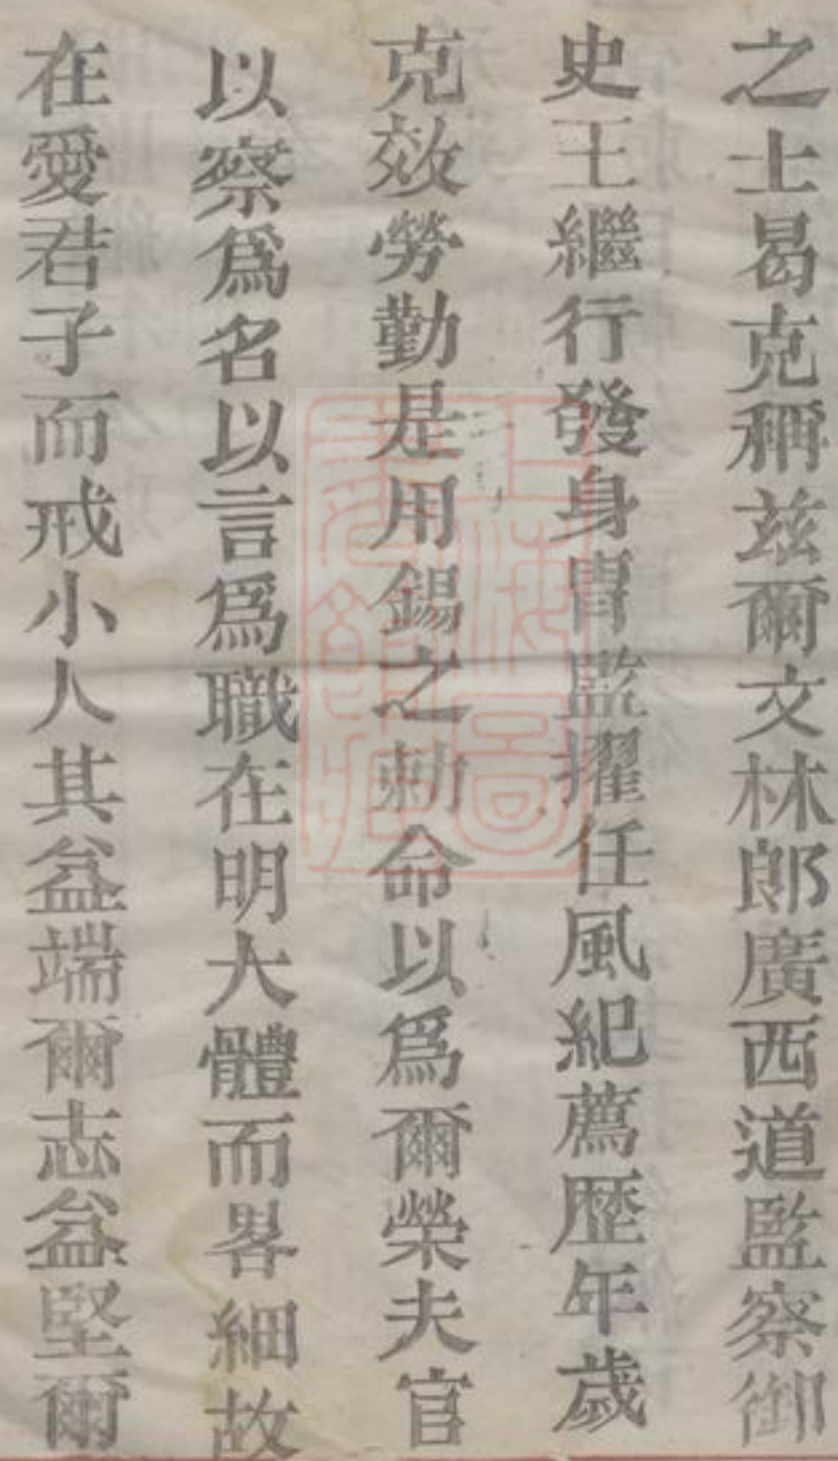 之士曷克稱茲爾文林郎廣西道監察御
史王繼行發身胄監擢任風紀薦歷年歲
克效勞勤是用錫之勑命以爲爾榮夫官
以察爲名以言爲職在明大體而畧細故
在愛君子而戒小人其益端爾志益堅爾
上海圖書館藏